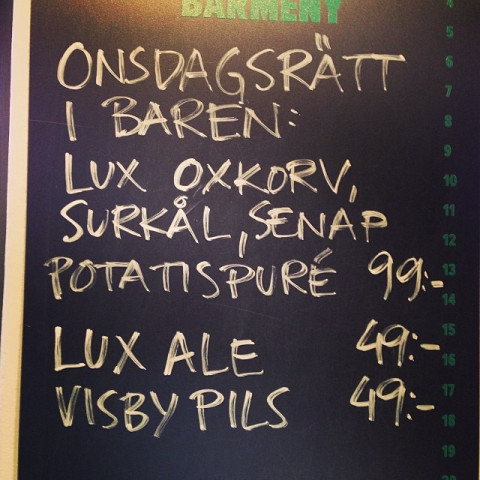 BARMENY
ONSDAGSRÄTT
I BAREN:
LUX OXKORV,
SURKÅL, SENAP
POTATISPURÉ 99:-
LUX ALE 49:-
VISBY PILS 49:-
4
5
6
7
8
9
10
11
12
13
14
15
16
17
18
19
20